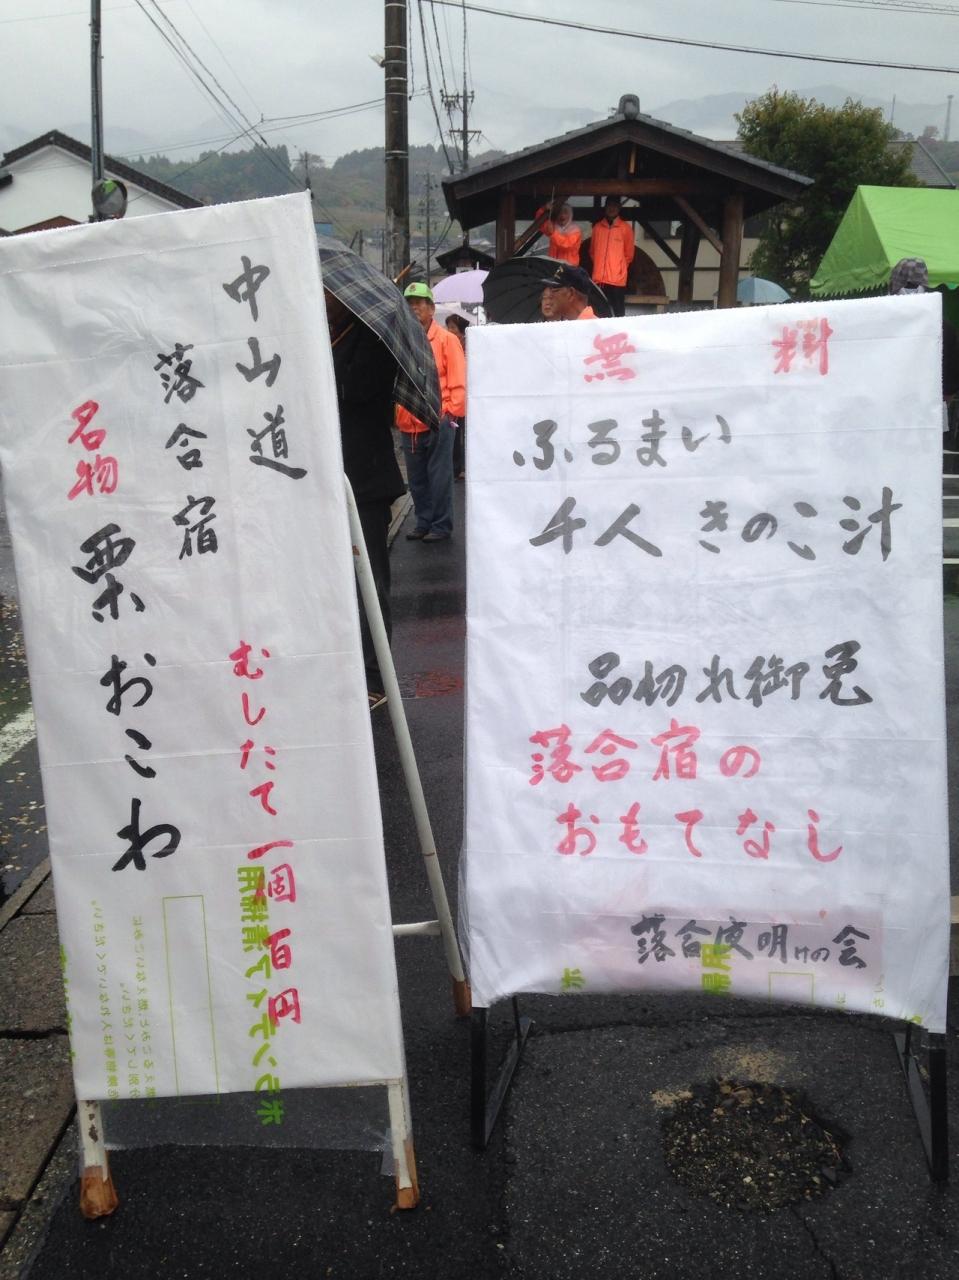 中山道
落合宿
名物 栗おこわ
むしたて 一個 百円
無料
ふるまい
千人 きのこ汁
品切れ御免
落合宿の
おもてなし
落合夜明けの会